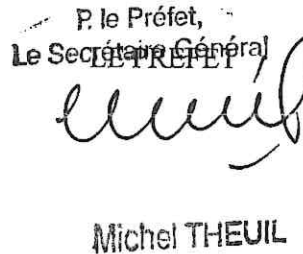 P. le Préfet,
Le Secrétaire Général
LE PREFET
Michel THEUIL